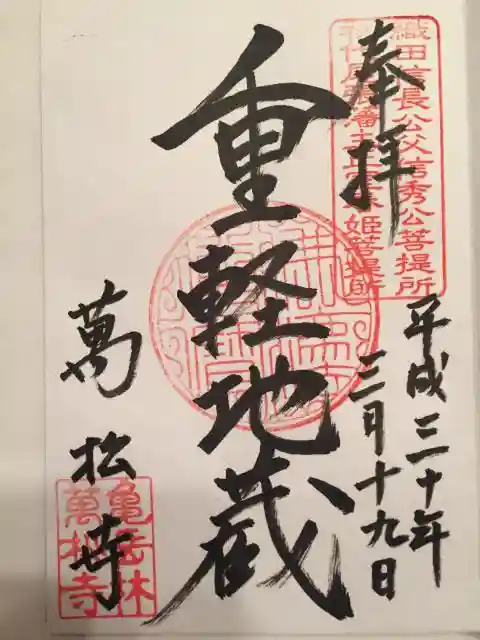 奉拝
織田信長公父信秀公菩提所
重軽地蔵
平成三十年
三月十九日
萬松寺
亀岳林
萬松寺